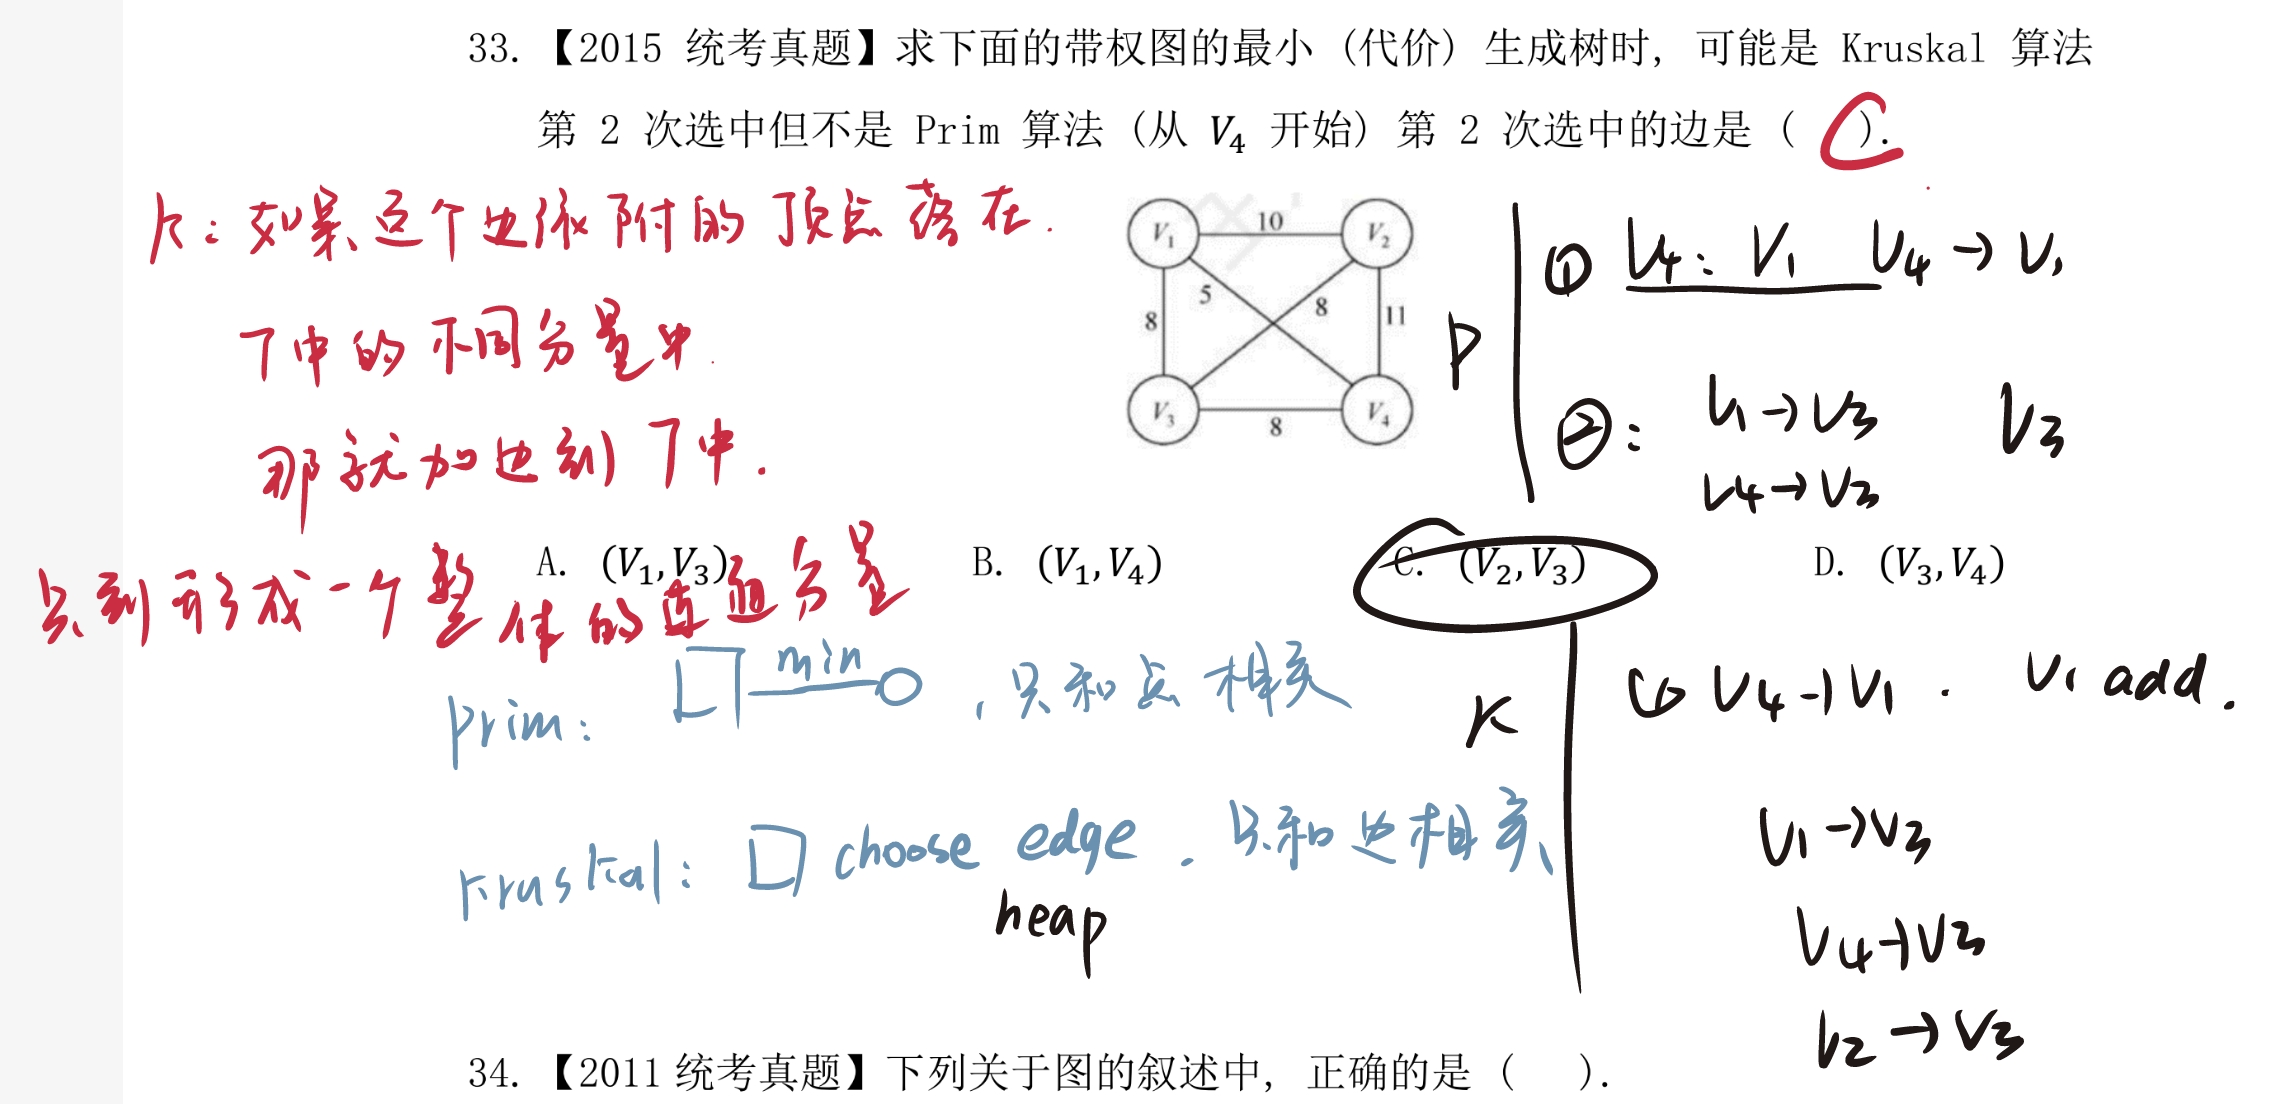 33. 【2015 统考真题】求下面的带权图的最小 (代价) 生成树时, 可能是 Kruskal 算法
第 2 次选中但不是 Prim 算法 (从 V₄ 开始) 第 2 次选中的边是 ( C ).
k: 如果这个边依附的顶点落在.
T中的不同分量中.
那就加边到T中.
只到形成一个整体的连通分量
V₁ 10 V₂
5 8
8 11
V₃ 8 V₄
P
① V4: V1 V4→V1
②: V1→V3 V3
V4→V3
A. (V₁,V₃) B. (V₁,V₄) C. (V₂,V₃) D. (V₃,V₄)
prim: min , 只和点相关
kruskal: choose edge . 只和边相关、
heap
K
① V4→V1 . V1 add.
V1→V3
V4→V3
V2→V3
34. 【2011 统考真题】下列关于图的叙述中, 正确的是 ( ).